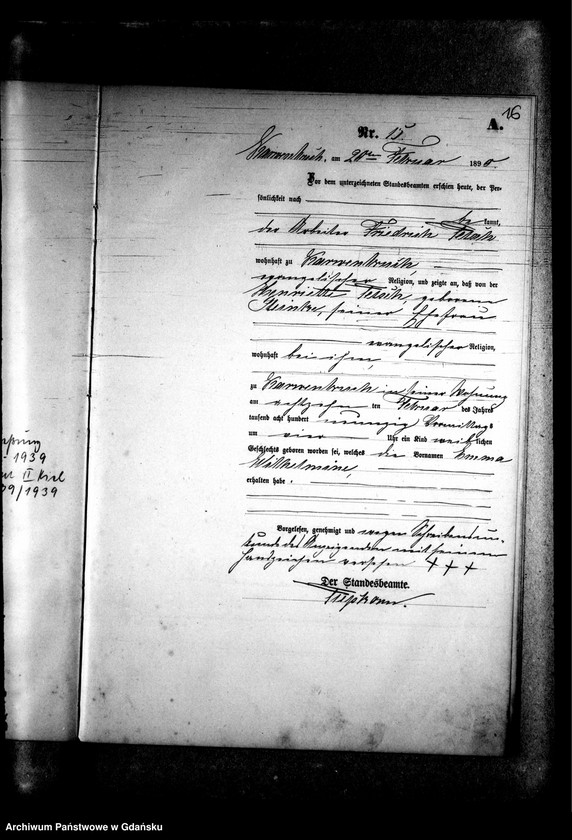 16
A.
Nr. 15
Karwenbruch, am 20ten Februar 1890.
Vor dem unterzeichneten Standesbeamten erschien heute, der Per-
sönlichkeit nach
be kannt,
der Arbeiter Friedrich
wohnhaft zu Karwenbruch,
evangelischer Religion, und zeigte an, daß von der
Henriette geborenen
seiner Ehefrau
evangelischer Religion,
wohnhaft bei ihm,
zu Karwenbruch in seiner Wohnung
am achtzehn ten Februar des Jahres
tausend acht hundert neunzig Vormittags
um vier Uhr ein Kind weib lichen
Geschlechts geboren worden sei, welches die Vornamen Emma
Wilhelmine,
erhalten habe.
Vorgelesen, genehmigt und wegen Schreibensun-
kunde des Anzeigenden mit seinem
Handzeichen versehen + + +
Der Standesbeamte.
1939
II Kiel
39/1939
Archiwum Państwowe w Gdańsku